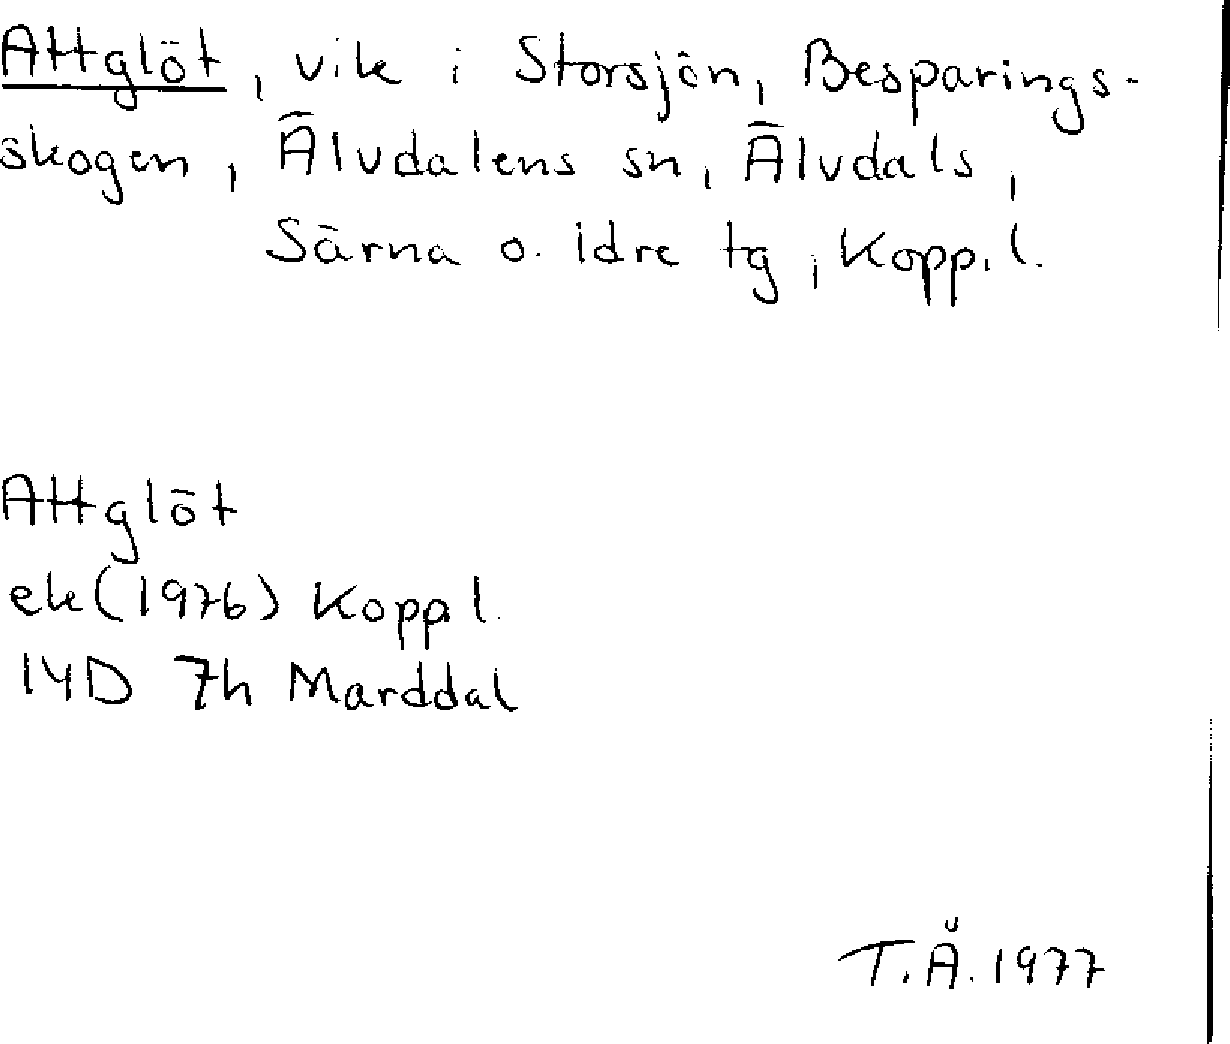 Attglöt, vik i Storsjön, Besparings-
skogen, Älvdalens sn, Älvdals,
Särna o. Idre tg, Kopp. l.
Attglöt
ek (1976) Kopp l.
14D 7h Marddal
T.Å. 1977